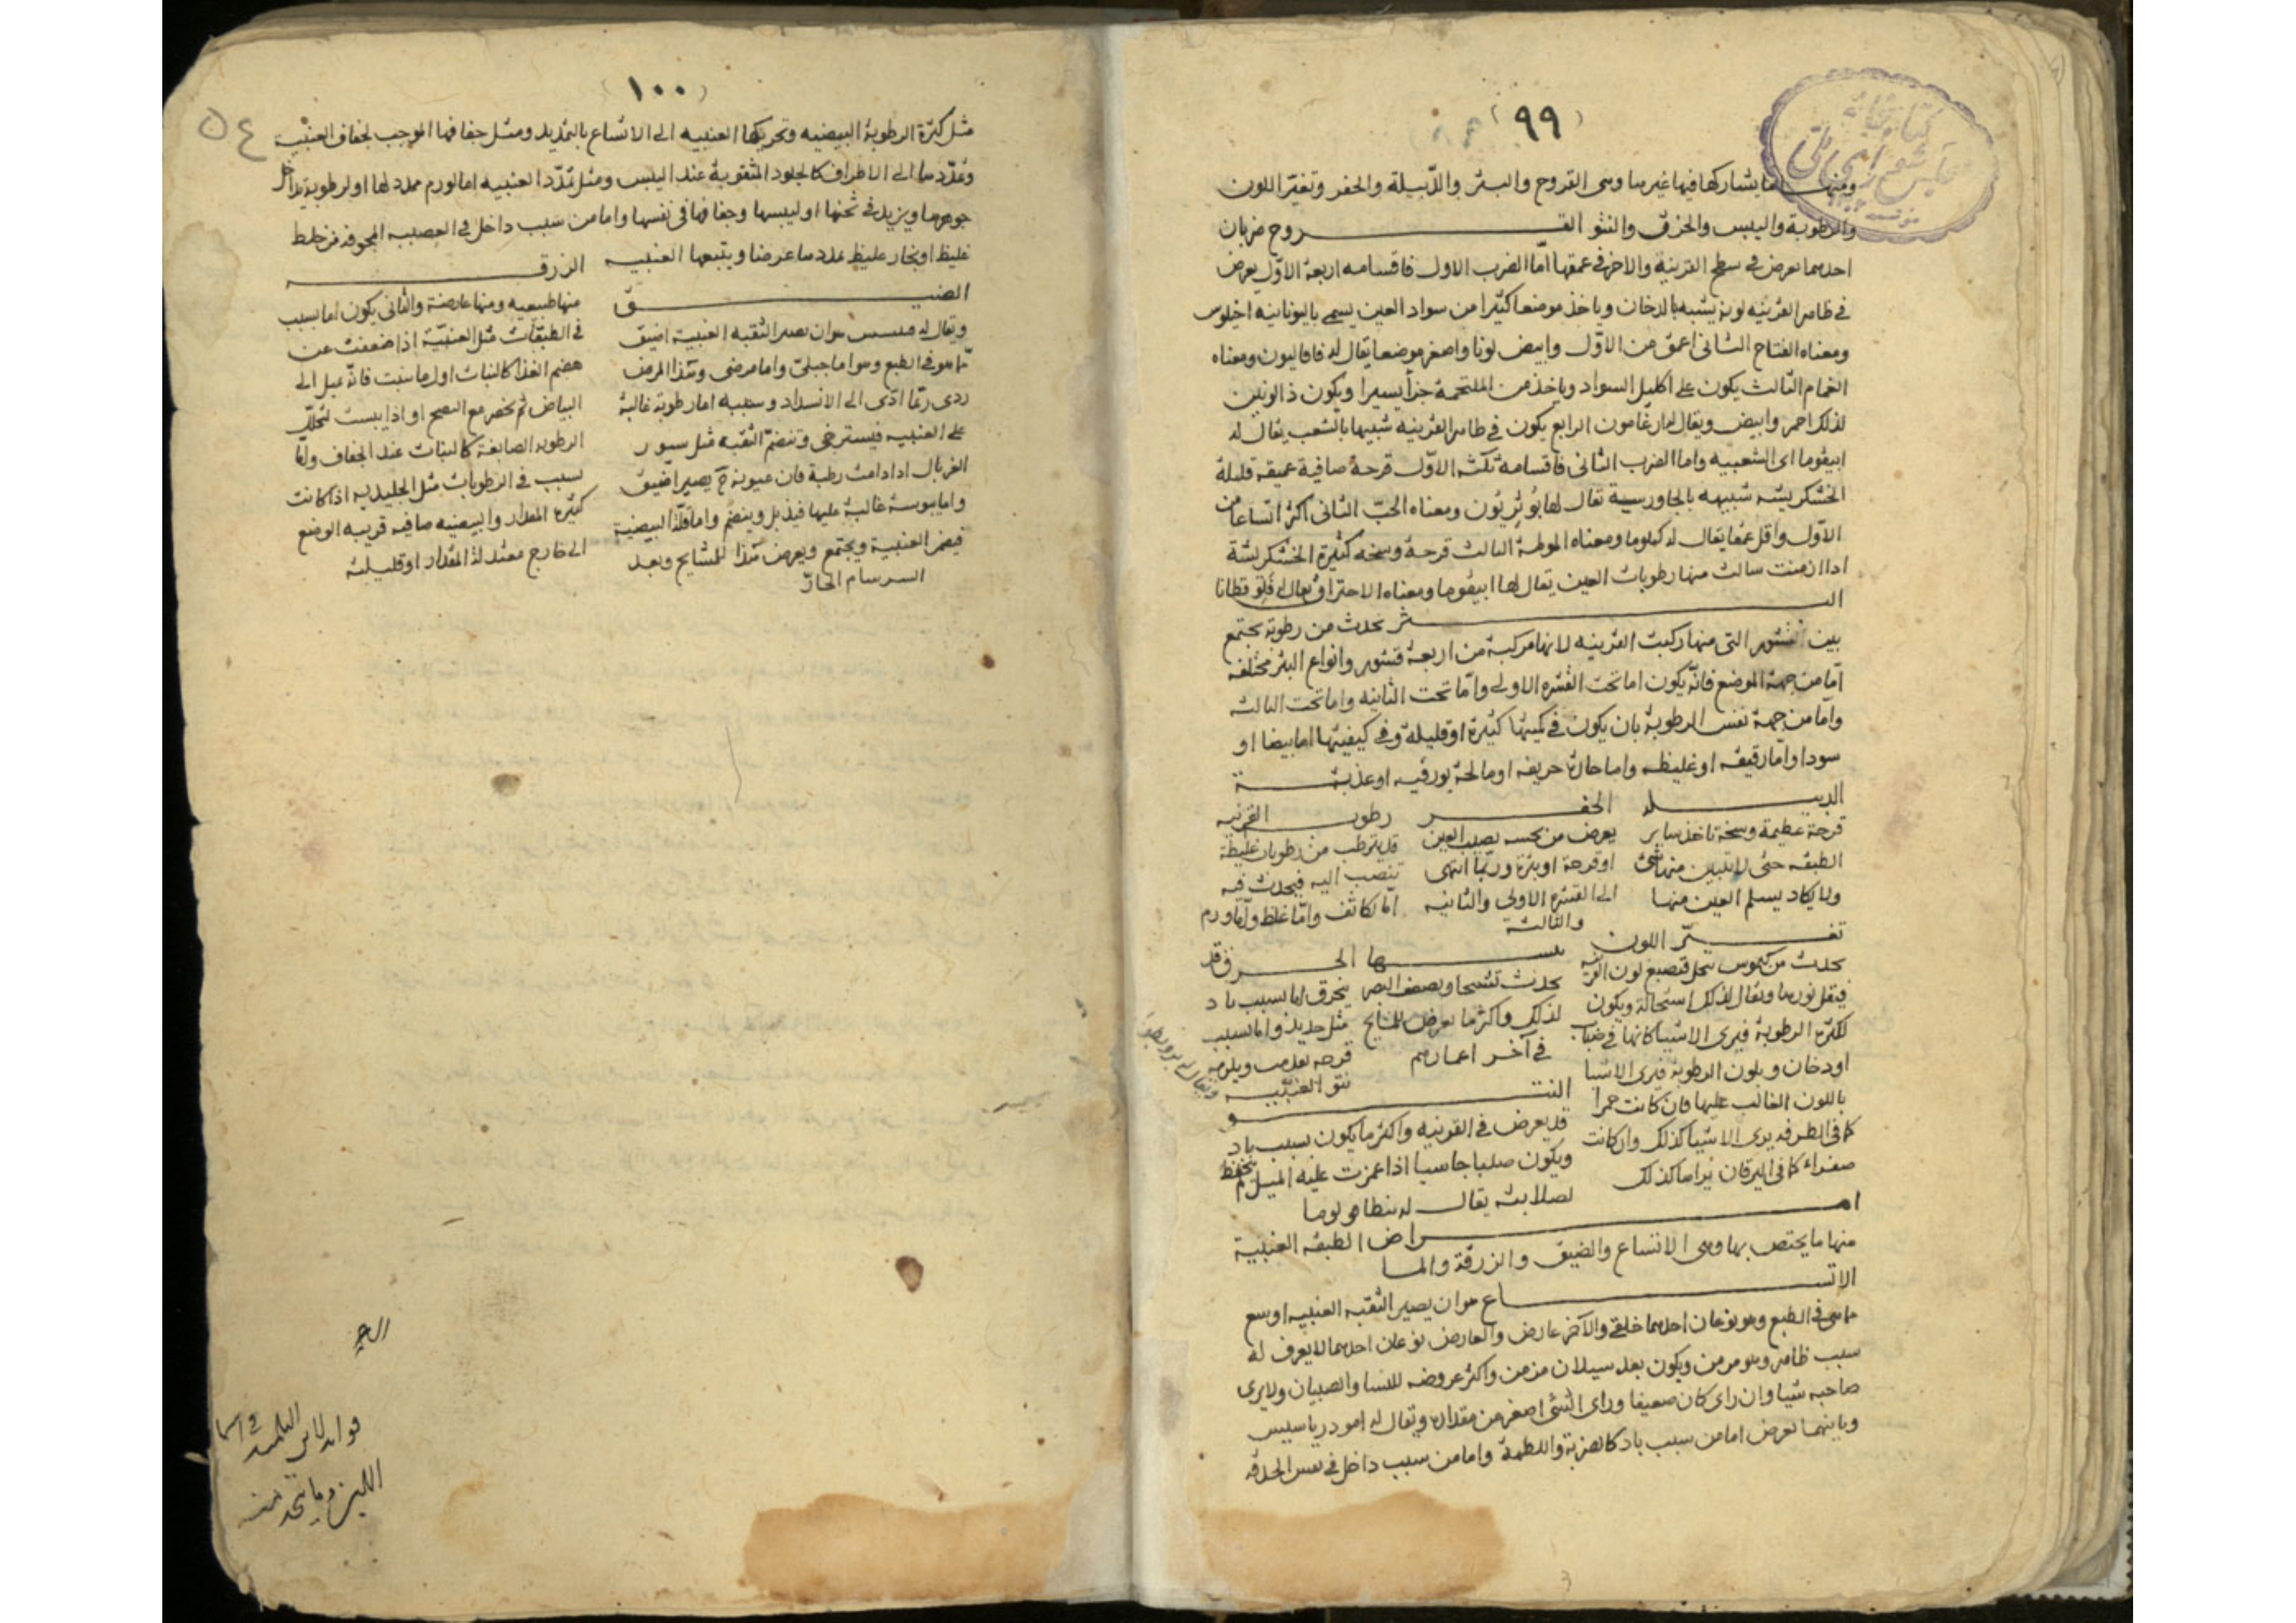 (٩٩)
ومنها ما يشاركها فيها غيرها وهى القروح والبثر والدّبيلة والحفر وتغيّر اللون
والرطوبة واليبس والخرق والنتو القروح ضربان
احدهما يعرض فى سطح القرنية والاخر فى عمقها امّا الضرب الاول فاقسامه اربعة الاوّل يعرض
فى ظاهر القرنيه لونه يشبه بالدخان وياخذ موضعا كثيرا من سواد العين يسمى باليونانيه اخيلوس
ومعناه القتام الثانى اعمق من الاوّل وابيض لونا واصغر موضعا يقال له فافاليون ومعناه
الغمام الثالث يكون على اكليل السواد وياخذ من الملتحمة جزأ يسيرا ويكون ذا لونين
لذلك احمر وابيض ويقال له ارغامون الرابع يكون فى ظاهر القرنيه شبيها بالشعب يقال له
ابيقوما اى الشعبيه واما الضرب الثانى فاقسامه ثلثه الاوّل قرحة صافية عميقه قليلة
الخشكريشه شبيهه بالجاورسية تقال لها بوثريون ومعناه الحبّ الثانى اكثر اتساعا من
الاوّل واقل عمقا يقال له كيلوما ومعناه الثالث قرحة وسخه كثيرة الخشكريشة
اذا ازمنت سالت منها رطوبات العين يقال لها ابيقوما ومعناه الاحتراق
البثر تحدث من رطوبة تجتمع
بين القشور التى منها ركبت القرنيه لانها مركبة من اربعة قشور وانواع البثر مختلفه
امّا من جهة الموضع فانّه يكون اما تحت القشره الاولى وامّا تحت الثانيه واما تحت الثالثه
وامّا من جهة نفس الرطوبة بان يكون فى كميتها كثيرة او قليلة وفى كيفيتها اما بيضا او
سودا وامّا رقيقه او غليظه واما حادة حريفه او مالحة بورقيه او عذبة
الدبيله
قرحة عظيمة وسخة تاخذ ساير
الطبقه حتى لا يتبين منها شئ
ولا يكاد يسلم العين منها
الحفر
يعرض من نخسه يصيب العين
او قرحة او بثرة وربّما انتهى
الى القشره الاولى والثانيه
والثالثة
رطوبة القرنيه
قد يترطب من رطوبات غليظة
تنصب اليه فيحدث فيه
امّا تكاثف وامّا غلظ وامّا ورم
تغيّر اللون
يحدث من كيموس ينحل فتصبغ لون القرنيه
فيقل نورها ويقال لذلك استحالة ويكون
لكثرة الرطوبة فيرى الاشيا كانها فى ضباب
او دخان وبلون الرطوبة فيرى الاشيا
باللون الغالب عليها فان كانت حمرا
كما فى الطرفه يرى الاشيا كذلك وان كانت
صفراء كما فى اليرقان يراها كذلك
يبسها
يحدث تشنجا ويضعف البصر
لذلك واكثر ما يعرض للمشايخ
فى آخر اعمارهم
الخرق قد
ينخرق اما بسبب باد
مثل حديد واما بسبب
قرحه تعذبت ويلزمه
نتو العنبيّه
النتو
قد يعرض فى القرنيه واكثر ما يكون بسبب باد
ويكون صلبا جاسيا اذا غمزت عليه الميل لم ينخفظ
لصلابته يقال له
امراض الطبقه العنبية
منها ما يختص بها وهى الاتساع والضيق والزرقة والما
الاتساع هو ان يصير الثقبه العنبيه اوسع
ما هى فى الطبع وهو نوعان احدهما خلقى والآخر عارض والعارض نوعان احدهما لا يعرف له
سبب ظاهر وهو مرمن ويكون بعد سيلان مزمن واكثر عروضه للنسا والصبيان ولا يرى
صاحبه شيا وان راى كان ضعيفا وراى الشئ اصغر من مقداره ويقال له
وثانيهما يعرض اما من سبب باد كالضربة واللطمة واما من سبب داخل فى نفس الحدقه
(١٠٠)
٥٤
مثل كثرة الرطوبة البيضيه وتحريكها العنبيه الى الاتساع بالتمديد ومثل جفافها الموجب لجفاف العنبيّة
وتمدّدها الى الاطراف كالجلود المثقوبة عند اليبس ومثل تمدّد العنبيه اما لورم ممدد لها او لرطوبة يداخل
جوهرها ويزيد فى ثخنها او ليبسها وجفافها فى نفسها واما من سبب داخل فى العصبه المجوفه من خلط
غليظ او بخار غليظ يمددها عرضا ويتبعها العنبيه
الضيق
ويقال له هو ان يصير الثقبه العنبية اضيق
ممّا هو فى الطبع وهو اما جبلىّ واما مرضى وهذا المرض
ردى ربّما ادّى الى الانسداد وسببه اما رطوبة غالبة
على العنبيه فيسترخى وتنضمّ الثقبه مثل سيور
الغربال اذا دامت رطبة فان عيونه ح يصير اضيق
واما يبوسة غالبة عليها فيذبل وينضم واما قلّة البيضية
فيضم العنبية ويجتمع ويعرض هذا للمشايخ وبعد
السرسام الحادّ
الزرقة
منها طبيعيه ومنها عارضة والثانى يكون اما بسبب
فى الطبقات مثل العنبيّة اذا ضعفت عن
هضم الغذا كالنبات اول ما ينبت فانّه يميل الى
البياض ثم يخضر مع النضج او اذا يبست لتحلل
الرطوبه الصابغة كالنبات عند الجفاف وامّا
بسبب فى الرطوبات مثل الجليديه اذا كانت
كثيرة المقدار والبيضيه صافيه قريبه الوضع
الى خارج معتدلة المقدار او قليلته